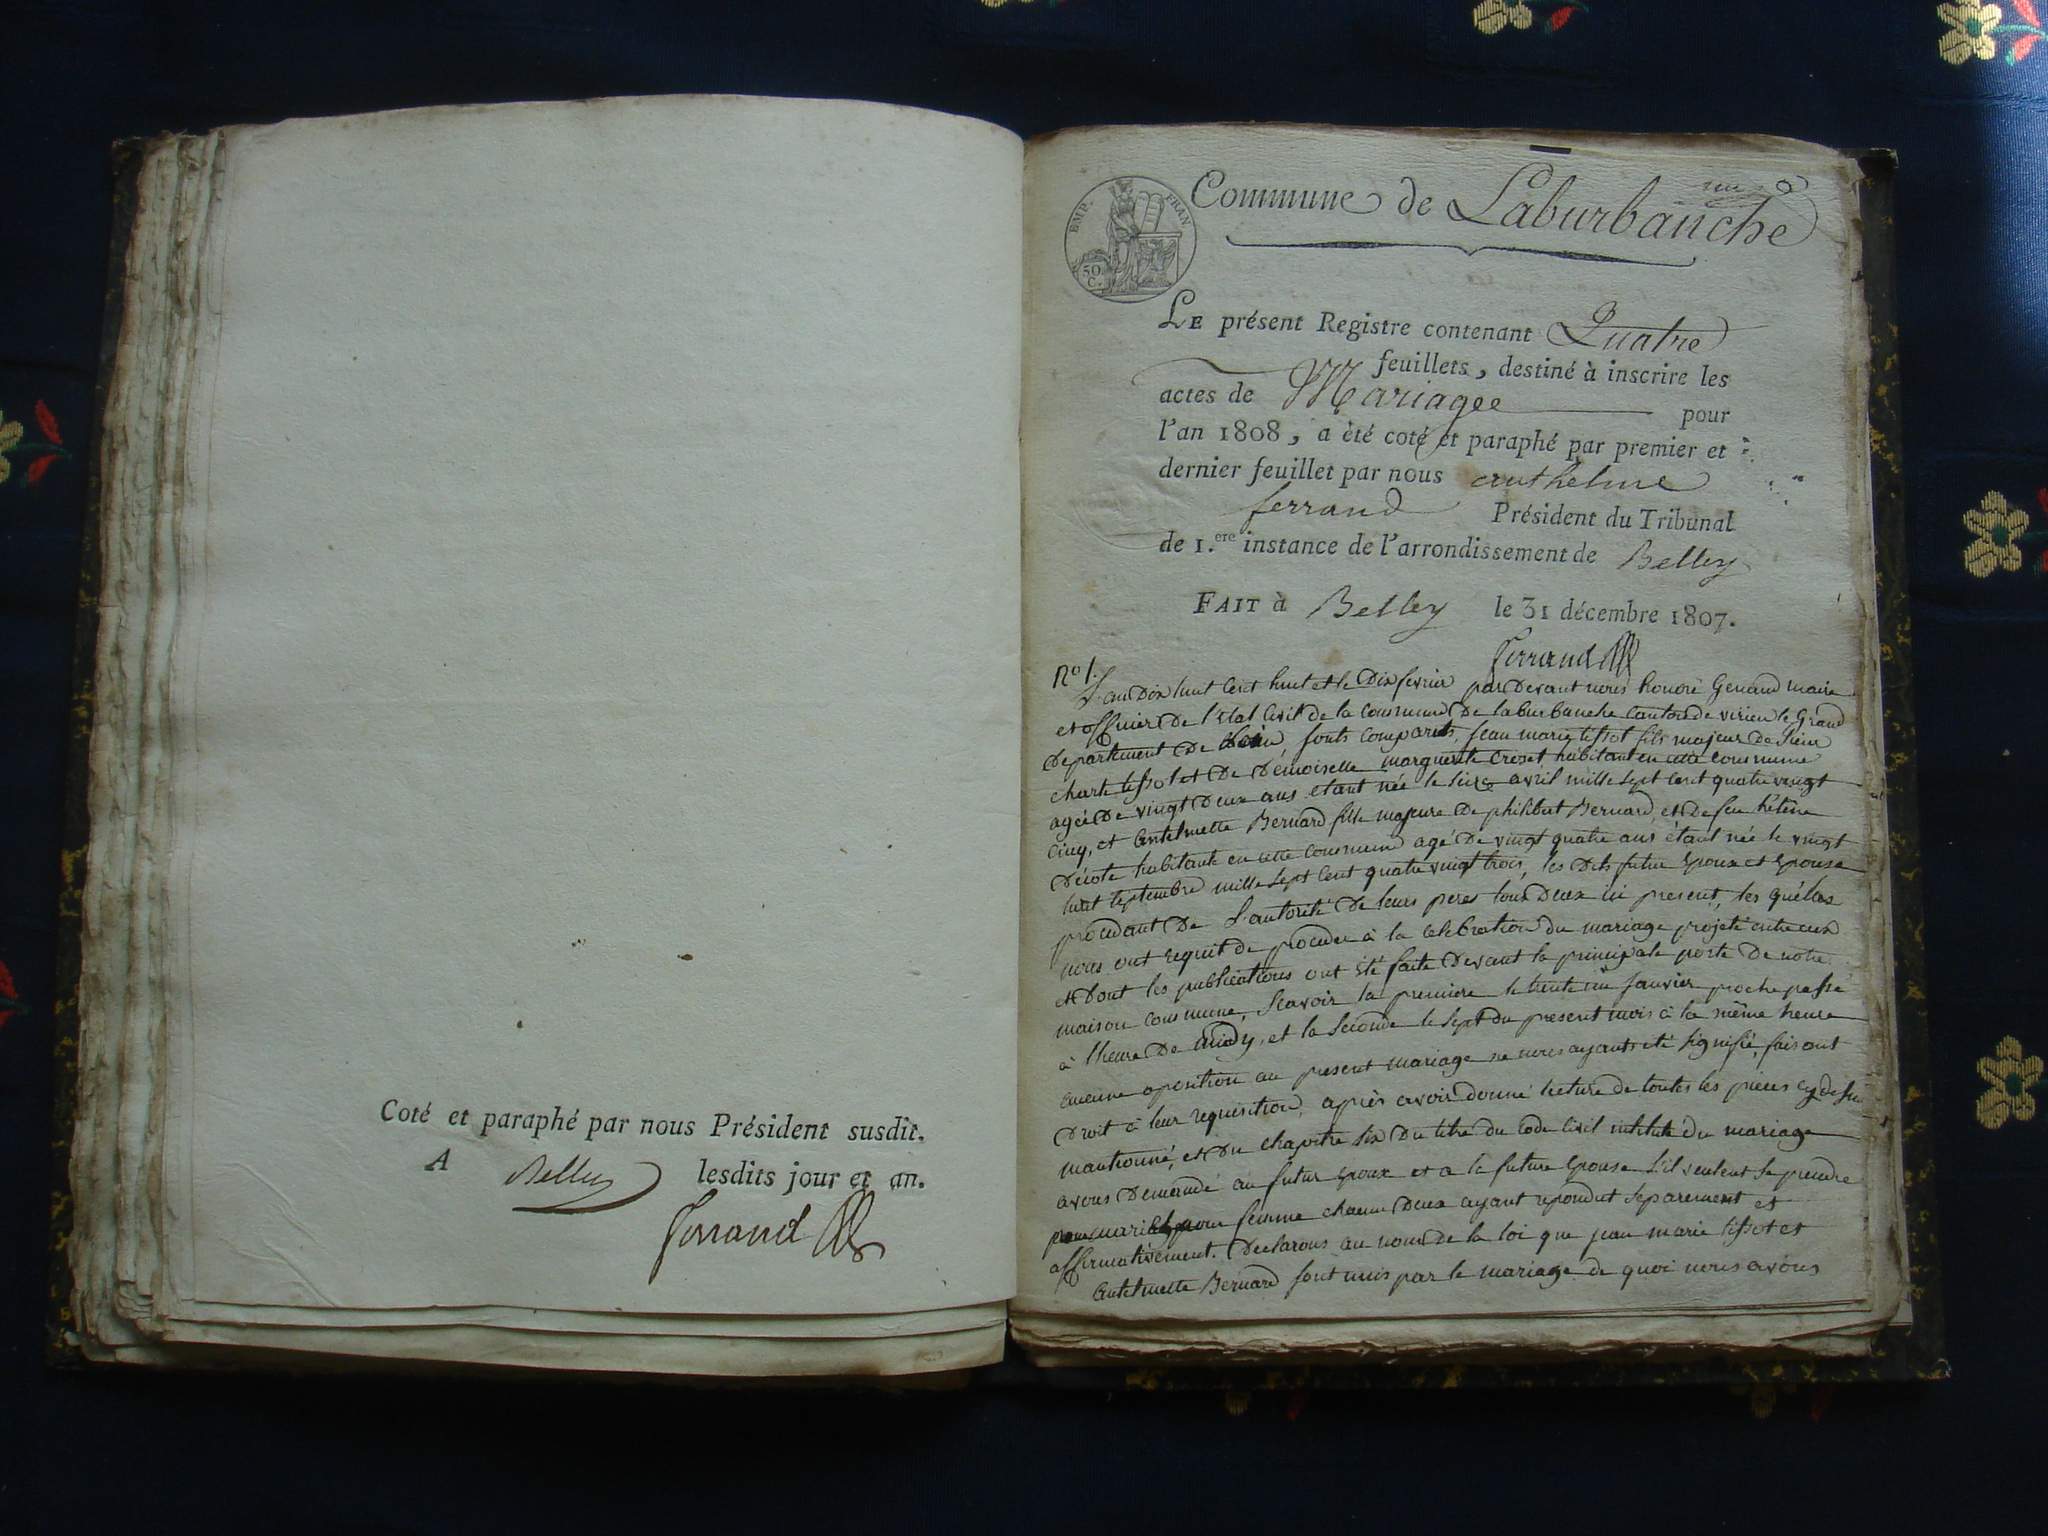 Coté et paraphé par nous Président susdit.
A Belley lesdits jour et an.
Ferrand
EMP. FRAN.
50
C.
Commune de Laburbanche
LE présent Registre contenant Quatre
feuillets, destiné à inscrire les
actes de Mariage pour
l'an 1808, a èté coté et paraphé par premier et
dernier feuillet par nous anthelme
ferrand Président du Tribunal
de 1.ere instance de l'arrondissement de Belley
FAIT à Belley le 31 décembre 1807.
Ferrand
No 1.
L'an Dix huit Cent huit et le Dix fevrier par Devant nous honoré Genand maire
et officier De l'etat Civil de la commune De laburbanche Canton de virieu le Grand
Departement De lain, sonts comparus, Jean marie tissot fils majeur De Sieur
charle tissot et De Demoiselle marguerite Croset habitant en cette commune
ageé De vingt Deux ans etant née le seize avril mille sept Cent quatre vingt
Cinq, et Antelmette Bernard fille majeure De philibert Bernard, et De feu heléne
Dévote habitante en cette commune agé De vingt quatre ans étant née le vingt
huit septembre mille sept Cent quatre vingt trois, les Dits futur Epoux et Epouse
procedant De L'autorité De leurs peres tous Deux ici present, les quélles
nous ont requit de proceder à la Celebration du mariage projeté entre eux
et Dont les publications ont été faite Devant la principale porte De notre
maison commune, Scavoir la premiere le trente un Janvier proche passé
à lheure De midy, et la seconde le sept du present mois à la même heure
aucune oposition au present mariage ne nous ayants eté signifié, faisant
Droit à leur requisition, après avoir donné lecture de toutes les pieces cy dessus
mantionné, et Du chapitre six Du titre du Code Civil intitulé du mariage
avons Demandé au futur Epoux et a la future Epouse s'il veulent se prendre
pour mari et pour femme chacun Deux ayant repondut separement et
affirmativement. Declarons au nom De la loi que jean marie tissot et
Antelmette Bernard sont unis par le mariage de quoi nous avons